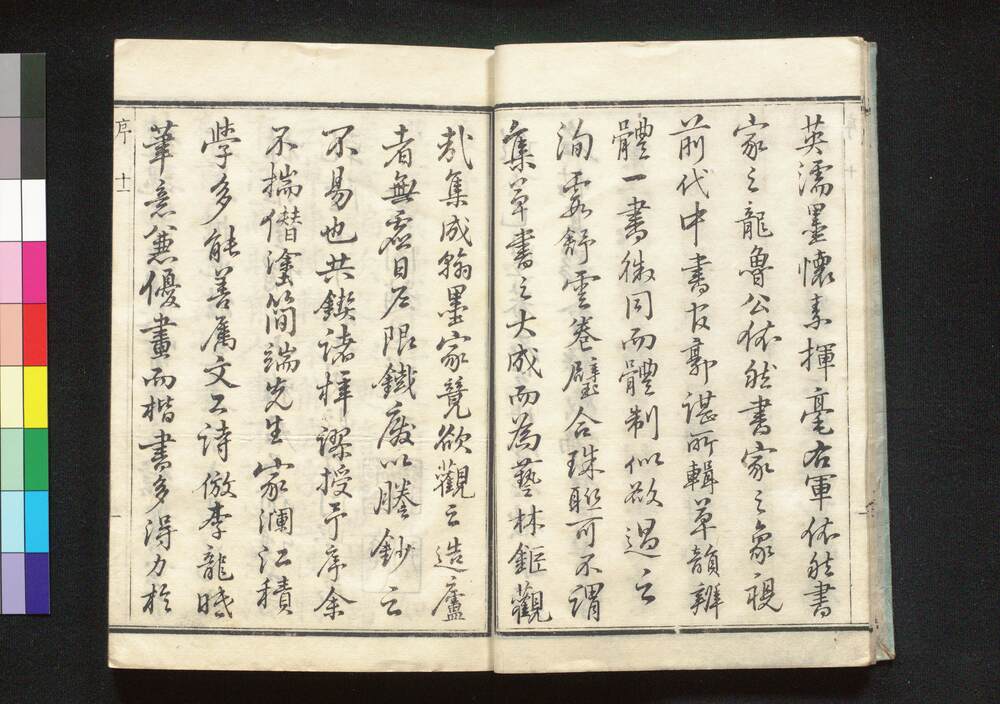 英濡墨懷素揮毫右軍依然書
家之龍魯公依然書家之象視
前代中書官郭諶所輯草韻辨
體一書徵同而體制似欲過之
洵霞舒雲卷璧合珠聯可不謂
集草書之大成而為藝林鉅觀
哉集成翰墨家競欲觀之造廬
者無虛日戶限鐵廢以謄鈔之
不易也共鍥諸梓謬授予序余
不揣僭塗簡端先生家瀾江積
學多能善屬文工詩倣李龍眠
筆意兼優畫而楷書多得力於
序 十一